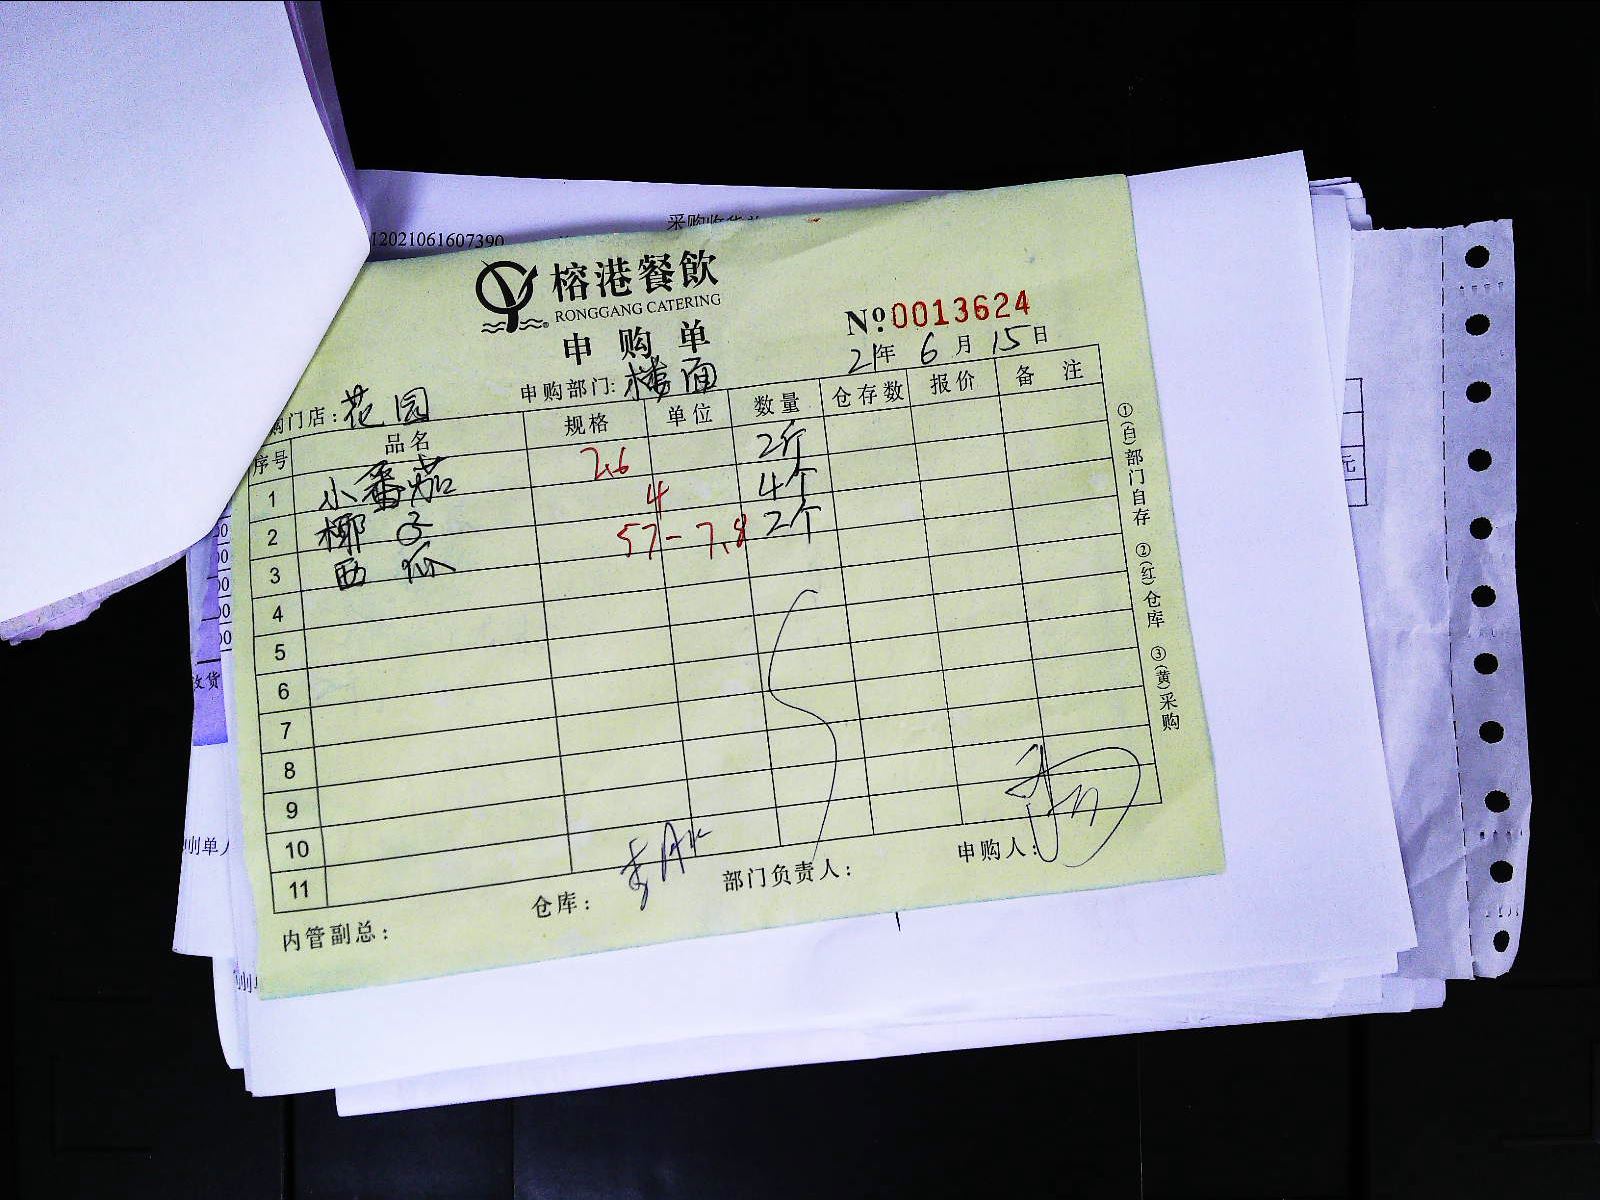 采购收货单
12021061607390
榕港餐飲
RONGGANG CATERING
申购单
Nº0013624
21年 6月 15日
购门店：花园 申购部门：楼面
序号 品名 规格 单位 数量 仓存数 报价 备注
1 小番茄 2.6 2斤
2 椰子 4 4个
3 西瓜 57-7.8 2个
4
5
6
7
8
9
10
11
内管副总： 仓库： 部门负责人： 申购人：
①(白)部门自存 ②(红)仓库 ③(黄)采购
00
00
00
00
00
收货
元
制单人